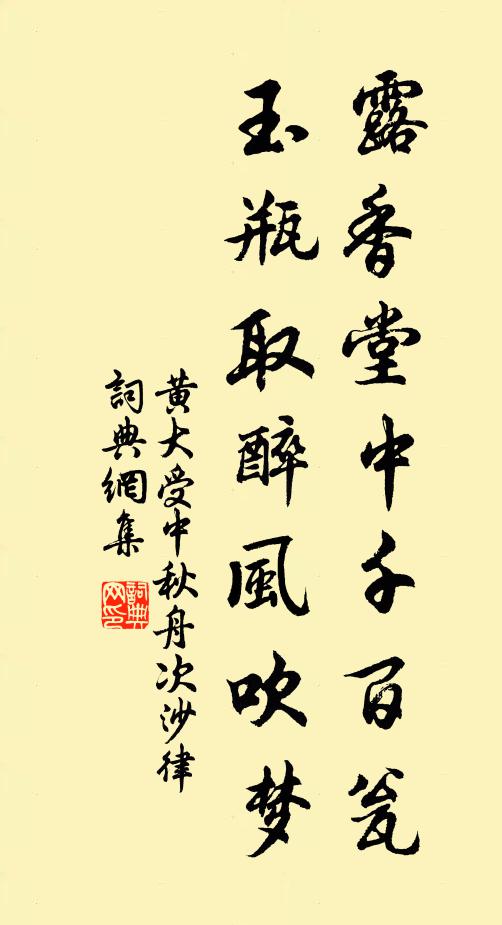 露香堂中千百瓮
玉瓶取醉風吹梦
黄大受中秋舟次沙律
詞典網集
詞典
网印